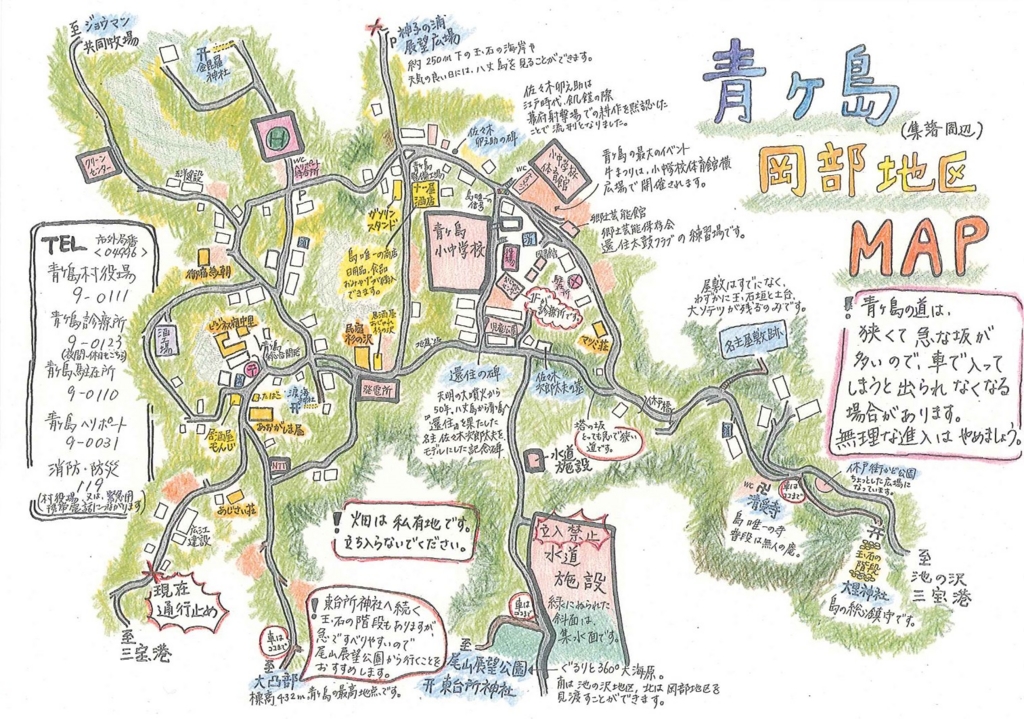 青ヶ島
(集落周辺)
岡部地区
MAP
至ジョウマン
共同牧場
金毘羅
神社
神子の浦
展望広場
約250m下の玉石の海岸や
天気の良い日には、八丈島を見ることができます。
佐々木卯之助は
江戸時代、飢饉の際
幕府射撃場での耕作を黙認した
ことで流刑となりました。
佐々木
卯之助の碑
青ヶ島の最大のイベント
牛まつりは、小中学校体育館横
広場で開催されます。
小中学校
体育館
WC
郷土芸能館
郷土芸能保存会
還住太鼓クラブの練習場です。
クリーン
センター
H
WC
ヘリポート
待合所
P
P
十一屋
酒店
ガソリン
スタンド
島唯一の
信号
青ヶ島
小中学校
島唯一の商店
日用品、食品
おみやげが購入
できます。
図書館
1F
診療所です。
児童公園
マツミ荘
御宿為朝
酒工場
ビジネス宿中里
民宿
杉の沢
居酒屋
おじゃれ
杉の沢
地熱波
発電所
渡海
神社
たばこ
あおがしま屋
居酒屋
もんじ
NTT
あじさい荘
広江
建設
還住の碑
天明の大噴火から
50年、八丈島から青ヶ島へ
"還住"を果たした
名主佐々木次郎太夫を
モデルにした記念碑
佐々木
次郎太夫の墓
塔の坂
とっても急で狭い
道です。
水道
施設
休戸橋
屋敷はすでになく、
わずかに玉石垣と土台、
大ソテツが残るのみです。
名主屋敷跡
! 青ヶ島の道は、
狭くて急な坂が
多いので、車で入って
しまうと出られなくなる
場合があります。
無理な進入はやめましょう。
休戸街かど公園
ちょっとした広場に
なっています。
WC
卍
清受寺
島唯一の寺
普段は無人の庵。
車は
ココまで
玉石の
階段
大里神社
島の総鎮守です。
至
池の沢
三宝港
TEL 市外局番
<04996>
青ヶ島村役場
9-0111
青ヶ島診療所
9-0123
(夜間・休日もこちら)
青ヶ島駐在所
9-0110
青ヶ島ヘリポート
9-0031
消防・防災
119
(村役場、又は、緊急用
携帯電話につながります)
! 畑は私有地です。
立ち入らないでください。
立入禁止
水道
施設
緑にぬられた
斜面は、
集水面です。
現在
通行止め
至
三宝港
! 東台所神社へ続く
玉石の階段もありますが
急ですべりやすいので
尾山展望公園から行くことを
おすすめします。
車は
ココまで
至
大凸部
標高432m青ヶ島の最高地点です。
車は
ココまで
至
尾山展望公園
東台所神社
ぐるりと360°大海原。
南は池の沢地区、北は岡部地区を
見渡すことができます。